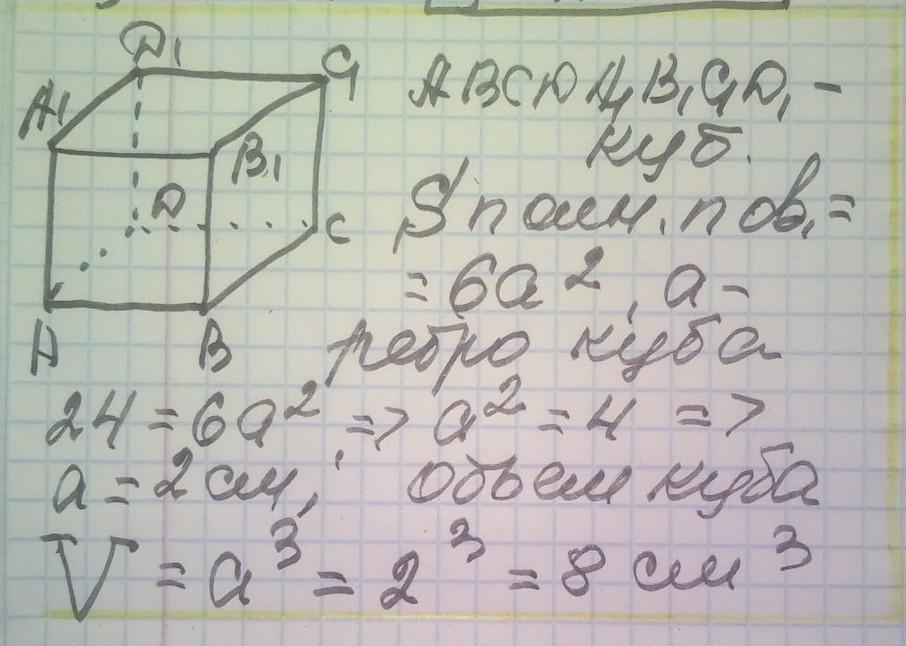 D₁
C₁
A₁
B₁
D
C
A
B
ABCDA₁B₁C₁D₁ -
куб.
Sполн.пов. =
= 6a², a -
ребро куба
24 = 6a², => a² = 4 =>
a = 2 см; объем куба
V = a³ = 2³ = 8 см³